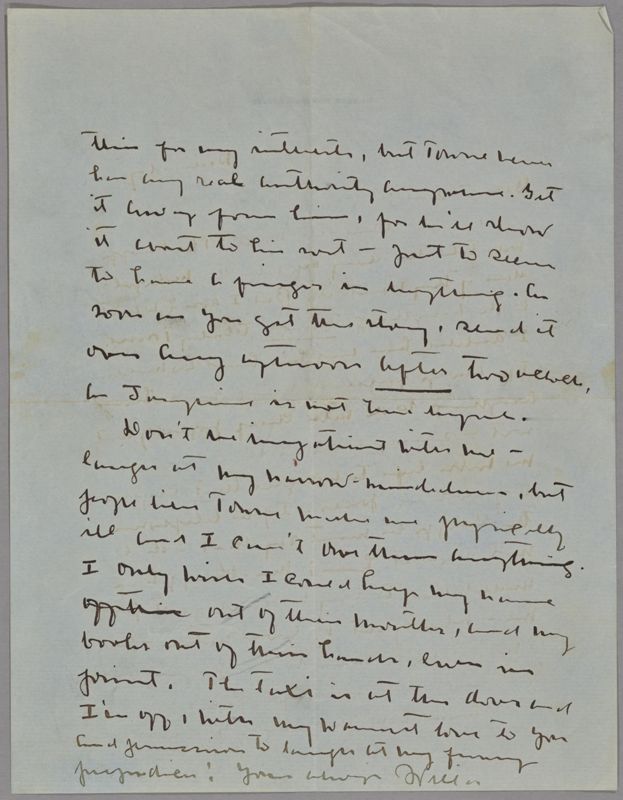 this for my interests, but Towne never
has any real authority anymore. Get
it away from him, for he'll show
it about to his set — just to seem
to have a finger in anything. As
soon as you get the story, send it
over any afternoon after two o'clock,
as Josephine is not here
Don't be impatient with me —
laugh at my narrow-mindedness, but
people like Towne make me physically
ill and I can't owe them anything.
I only wish I could keep my name
out of their mouths, and my
books out of their hands, even in
print. The taxi is at the door and
I'm off, with my warmest love to you
and permission to laugh at my funny
prejudices! Yours always Willa